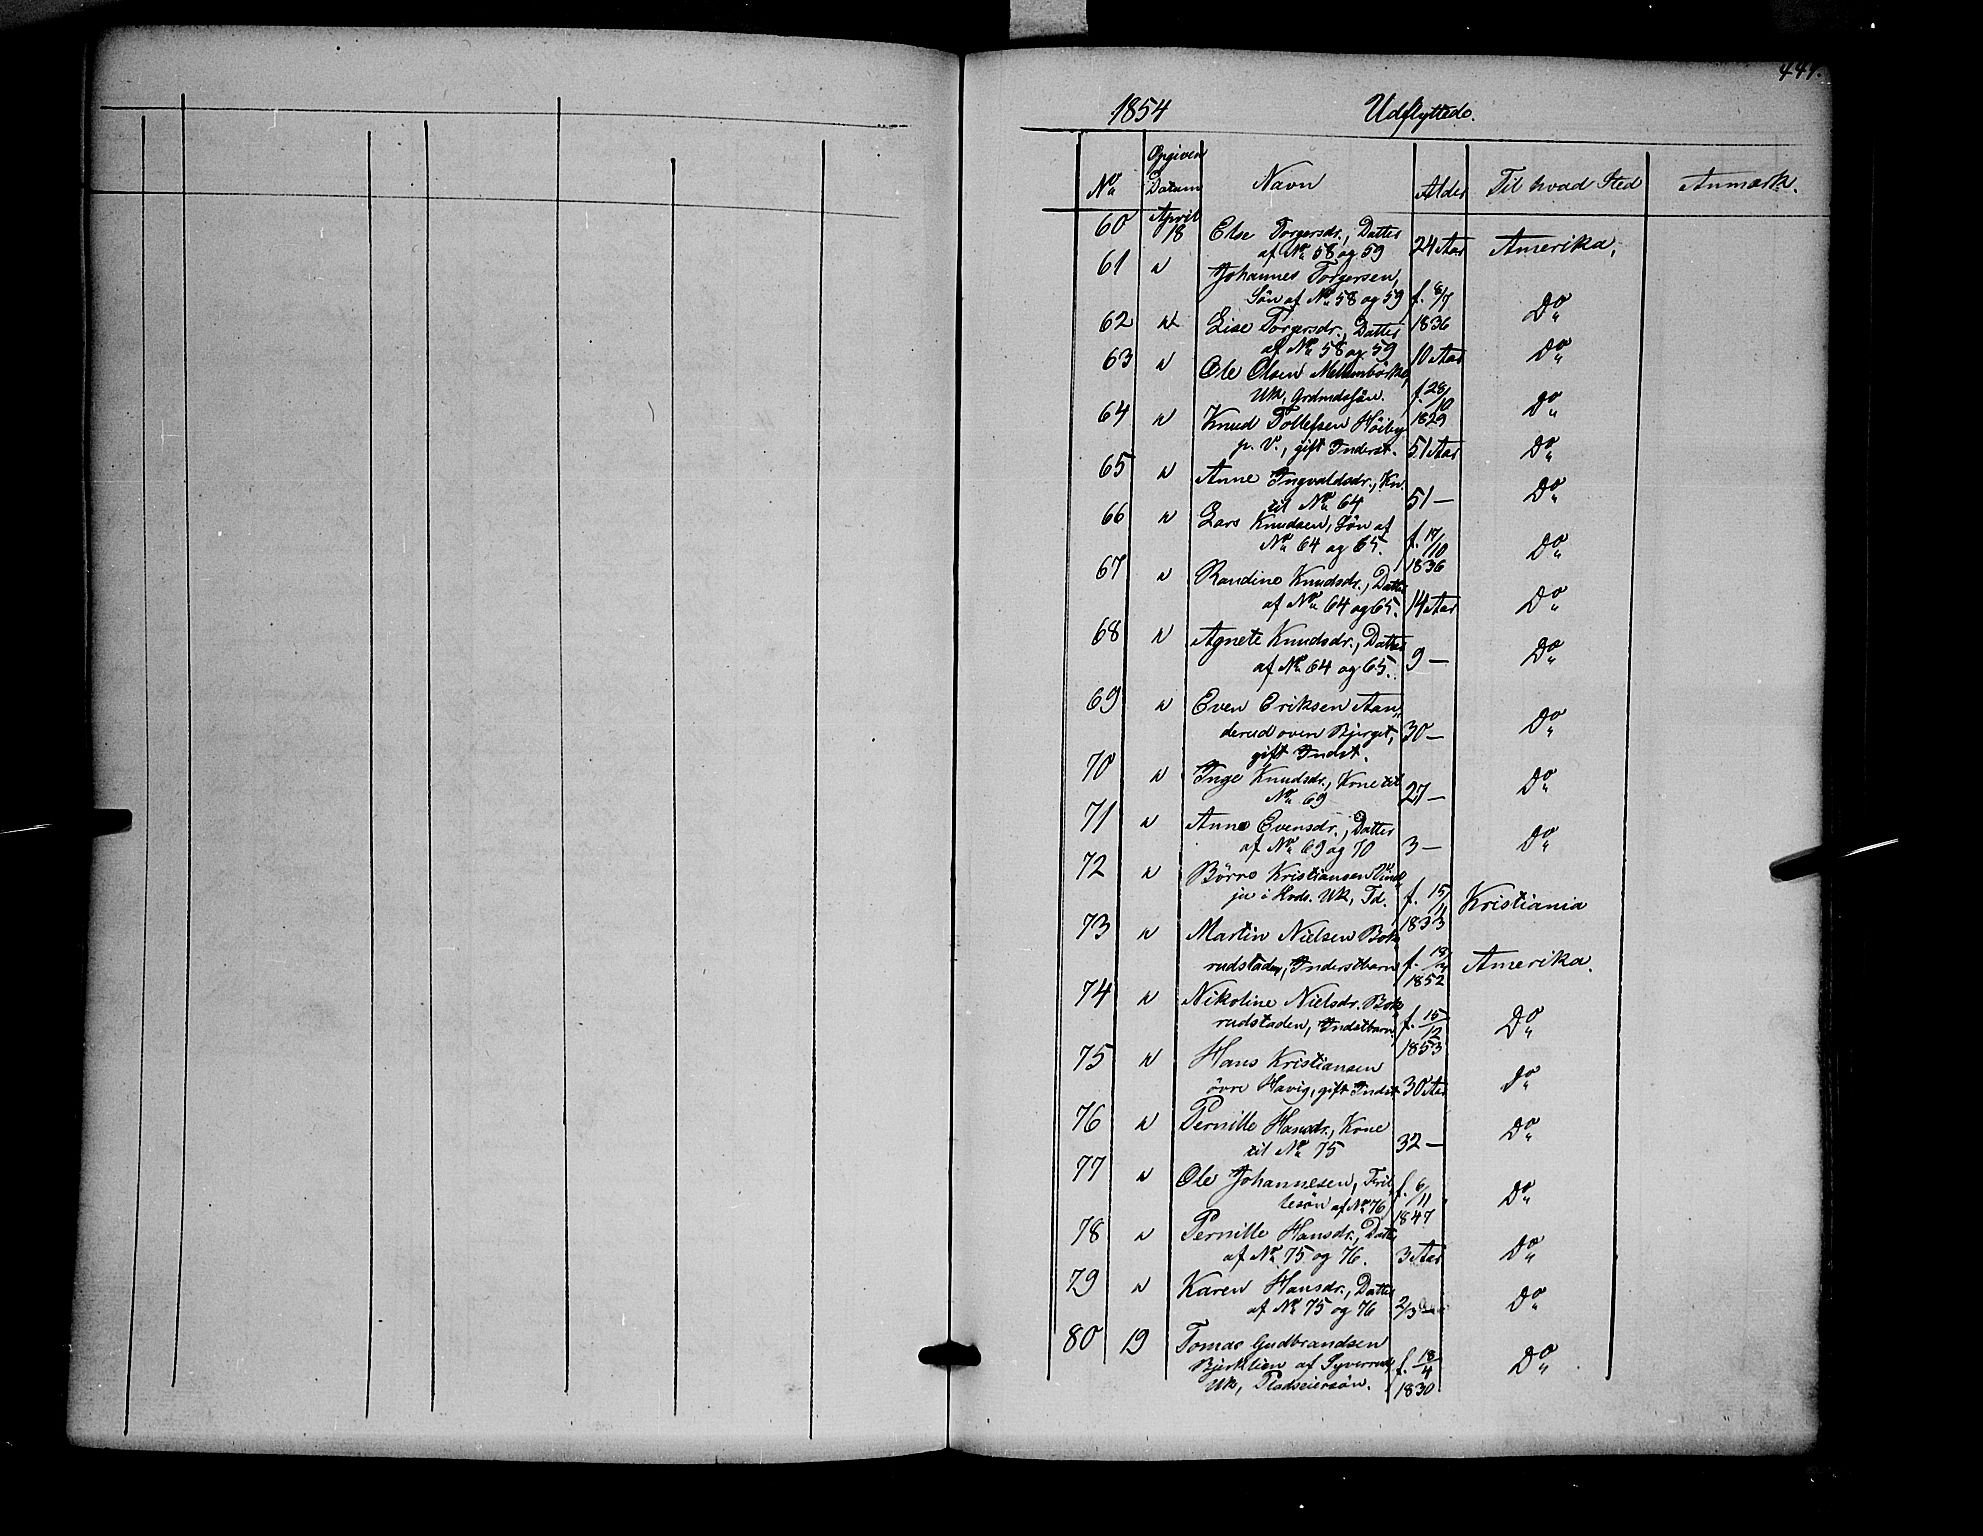 444.
1854 Udflyttede.
No Opgiven Datum Navn Alder Til hvad Sted Anmærk.
60 April 18 Else Torgersdr., Datter
af No 58 og 59 24 Aar Amerika,
61 " Johannes Torgersen,
Søn af No 58 og 59 f. 8/7 1836 Do
62 " Lise Torgersdr., Datter
af No 58 og 59 10 Aar Do
63 " Ole Olsen
Uk, Grdmdssøn. f. 28/10 1829 Do
64 " Knud Tollefsen Høiby
p. V., gift Inderst. 51 Aar Do
65 " Anne Ingvaldsdr., Kn.
til No 64 51 — Do
66 " Lars Knudsen, Søn af
No 64 og 65. f. 17/10 1836 Do
67 " Randine Knudsdr., Datter
af No 64 og 65. 14 Aar Do
68 " Agnete Knudsdr., Datter
af No 64 og 65. 9 — Do
69 " Even Eriksen Aan„
derud oven Bjerget, 30 — Do
gift Indst.
70 " Inge Knudsdr., Kone til
No 69 27 — Do
71 " Anne Evensdr., Datter
af No 69 og 70 3 — Do
72 " Børre Kristiansen
i Krds. Uk, Td. f. 15/11 1833 Kristiania
73 " Martin Nielsen Bok„
rudstaden, Inderstbarn f. 1852 Amerika.
74 " Nikoline Nielsdr. Bok„
rudstaden, Indstbarn f. 15/12 1853 Do
75 " Hans Kristiansen
øvre Havig, gift Indst 30 Aar Do
76 " Pernille Hansdr., Kone
til No 75 32 — Do
77 " Ole Johannesen, Fril„
lesøn af No 76 f. 6/11 1847 Do
78 " Pernille Hansdr., Datter
af No 75 og 76. 3 Aar Do
79 " Karen Hansdr., Datter
af No 75 og 76 2/3 — Do
80 19 Tomas Gudbrandsen
Bjerklien af Syverrud
Uk, Pladseiersøn. f. 18/4 1830 Do